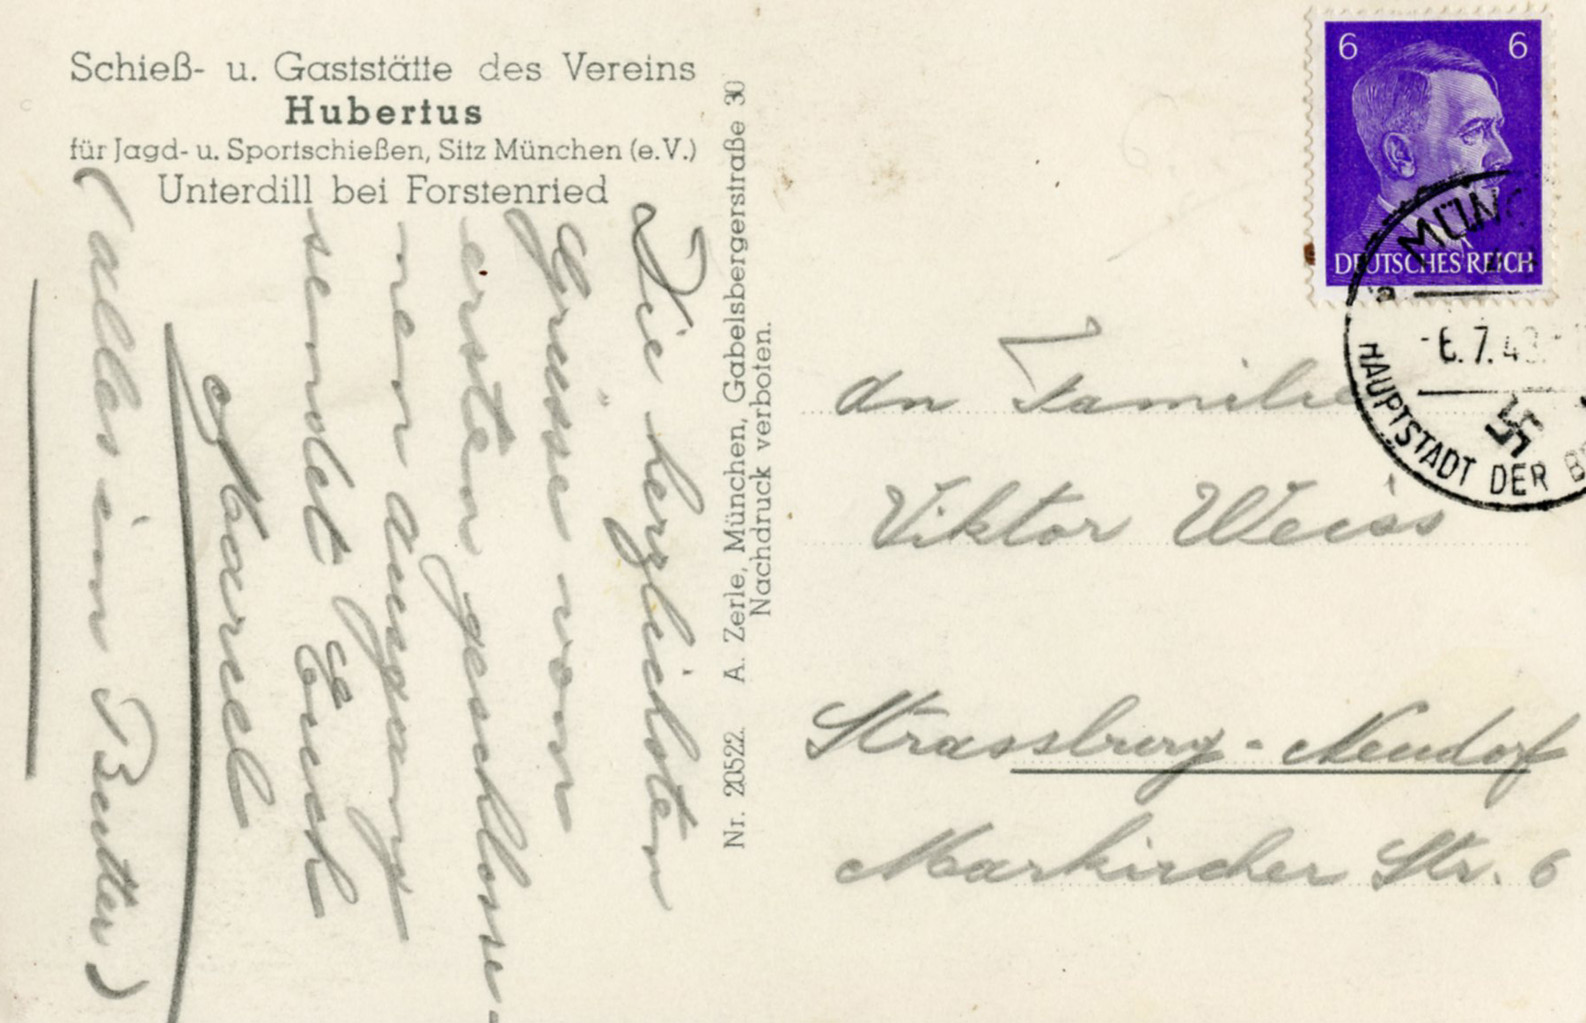 Schieß- u. Gaststätte des Vereins
Hubertus
für Jagd- u. Sportschießen, Sitz München (e.V.)
Unterdill bei Forstenried
Die herzlichsten
Grüsse von
ersten geschlosse-
nen ausgang
sendet Euch
Marcel
(alles in Butter)
Nr. 20522. A. Zerle, München, Gabelsbergerstraße 30
Nachdruck verboten.
6 6
DEUTSCHES REICH
MÜNC
6.7.43
HAUPTSTADT DER
An Familie
Viktor Weiss
Strassburg - Neudorf
Markircher Str. 6